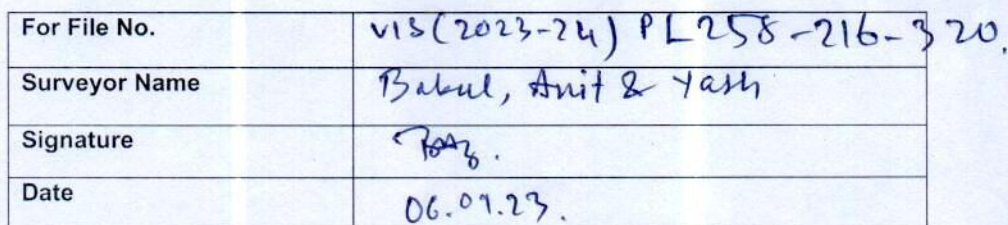 For File No. VIS(2023-24) PL258-216-320.
Surveyor Name Bakul, Anit & Yash
Signature
Date 06.09.23.